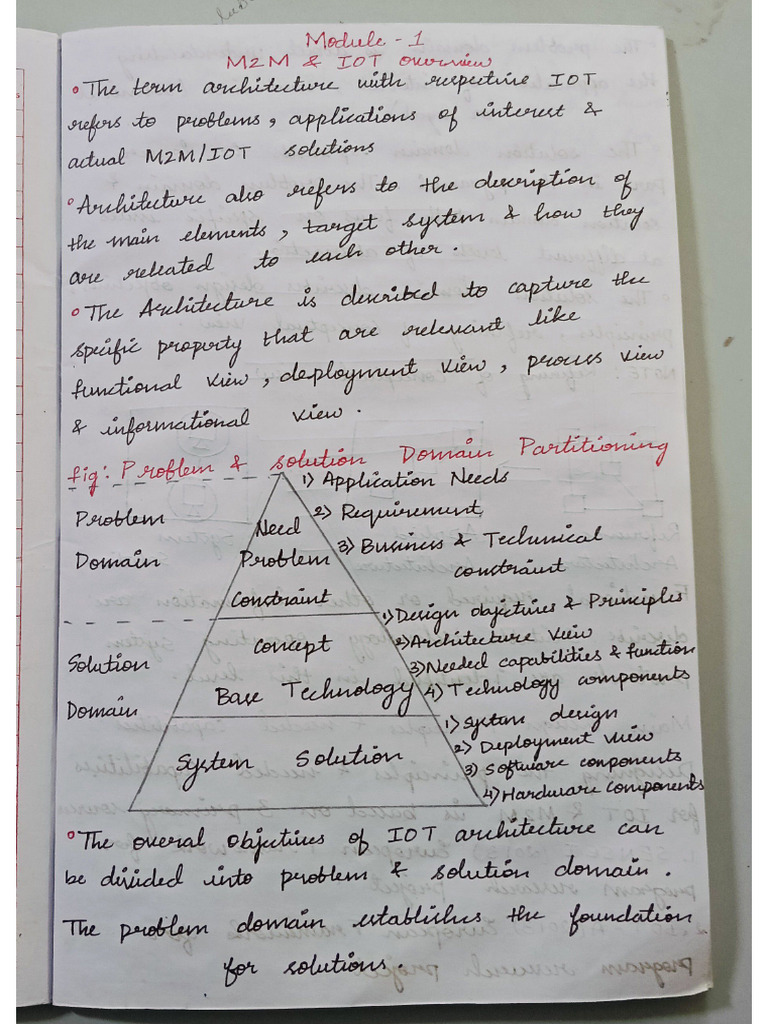 Module - 1
M2M & IOT overview
• The term architecture with respective IOT
refers to problems, applications of interest &
actual M2M/IOT solutions
• Architecture also refers to the description of
the main elements, target system & how they
are releated to each other.
• The Architecture is described to capture the
specific property that are relenant like
functional view, deployment view, process view
& informational view.
fig: Problem & solution Domain Partitioning
Problem
Domain
Need
Problem
Constraint
1) Application Needs
2) Requirement
3) Business & Technical
constraint
Solution
Domain
Concept
Base Technology
1) Design objectives & Principles
2) Architecture view
3) Needed capabilities & function
4) Technology components
System Solution
1) System design
2) Deployment view
3) Software conponents
4) Hardware components
• The overal objectives of IOT architecture can
be divided into problem & solution domain.
The problem domain establishes the foundation
for solutions.